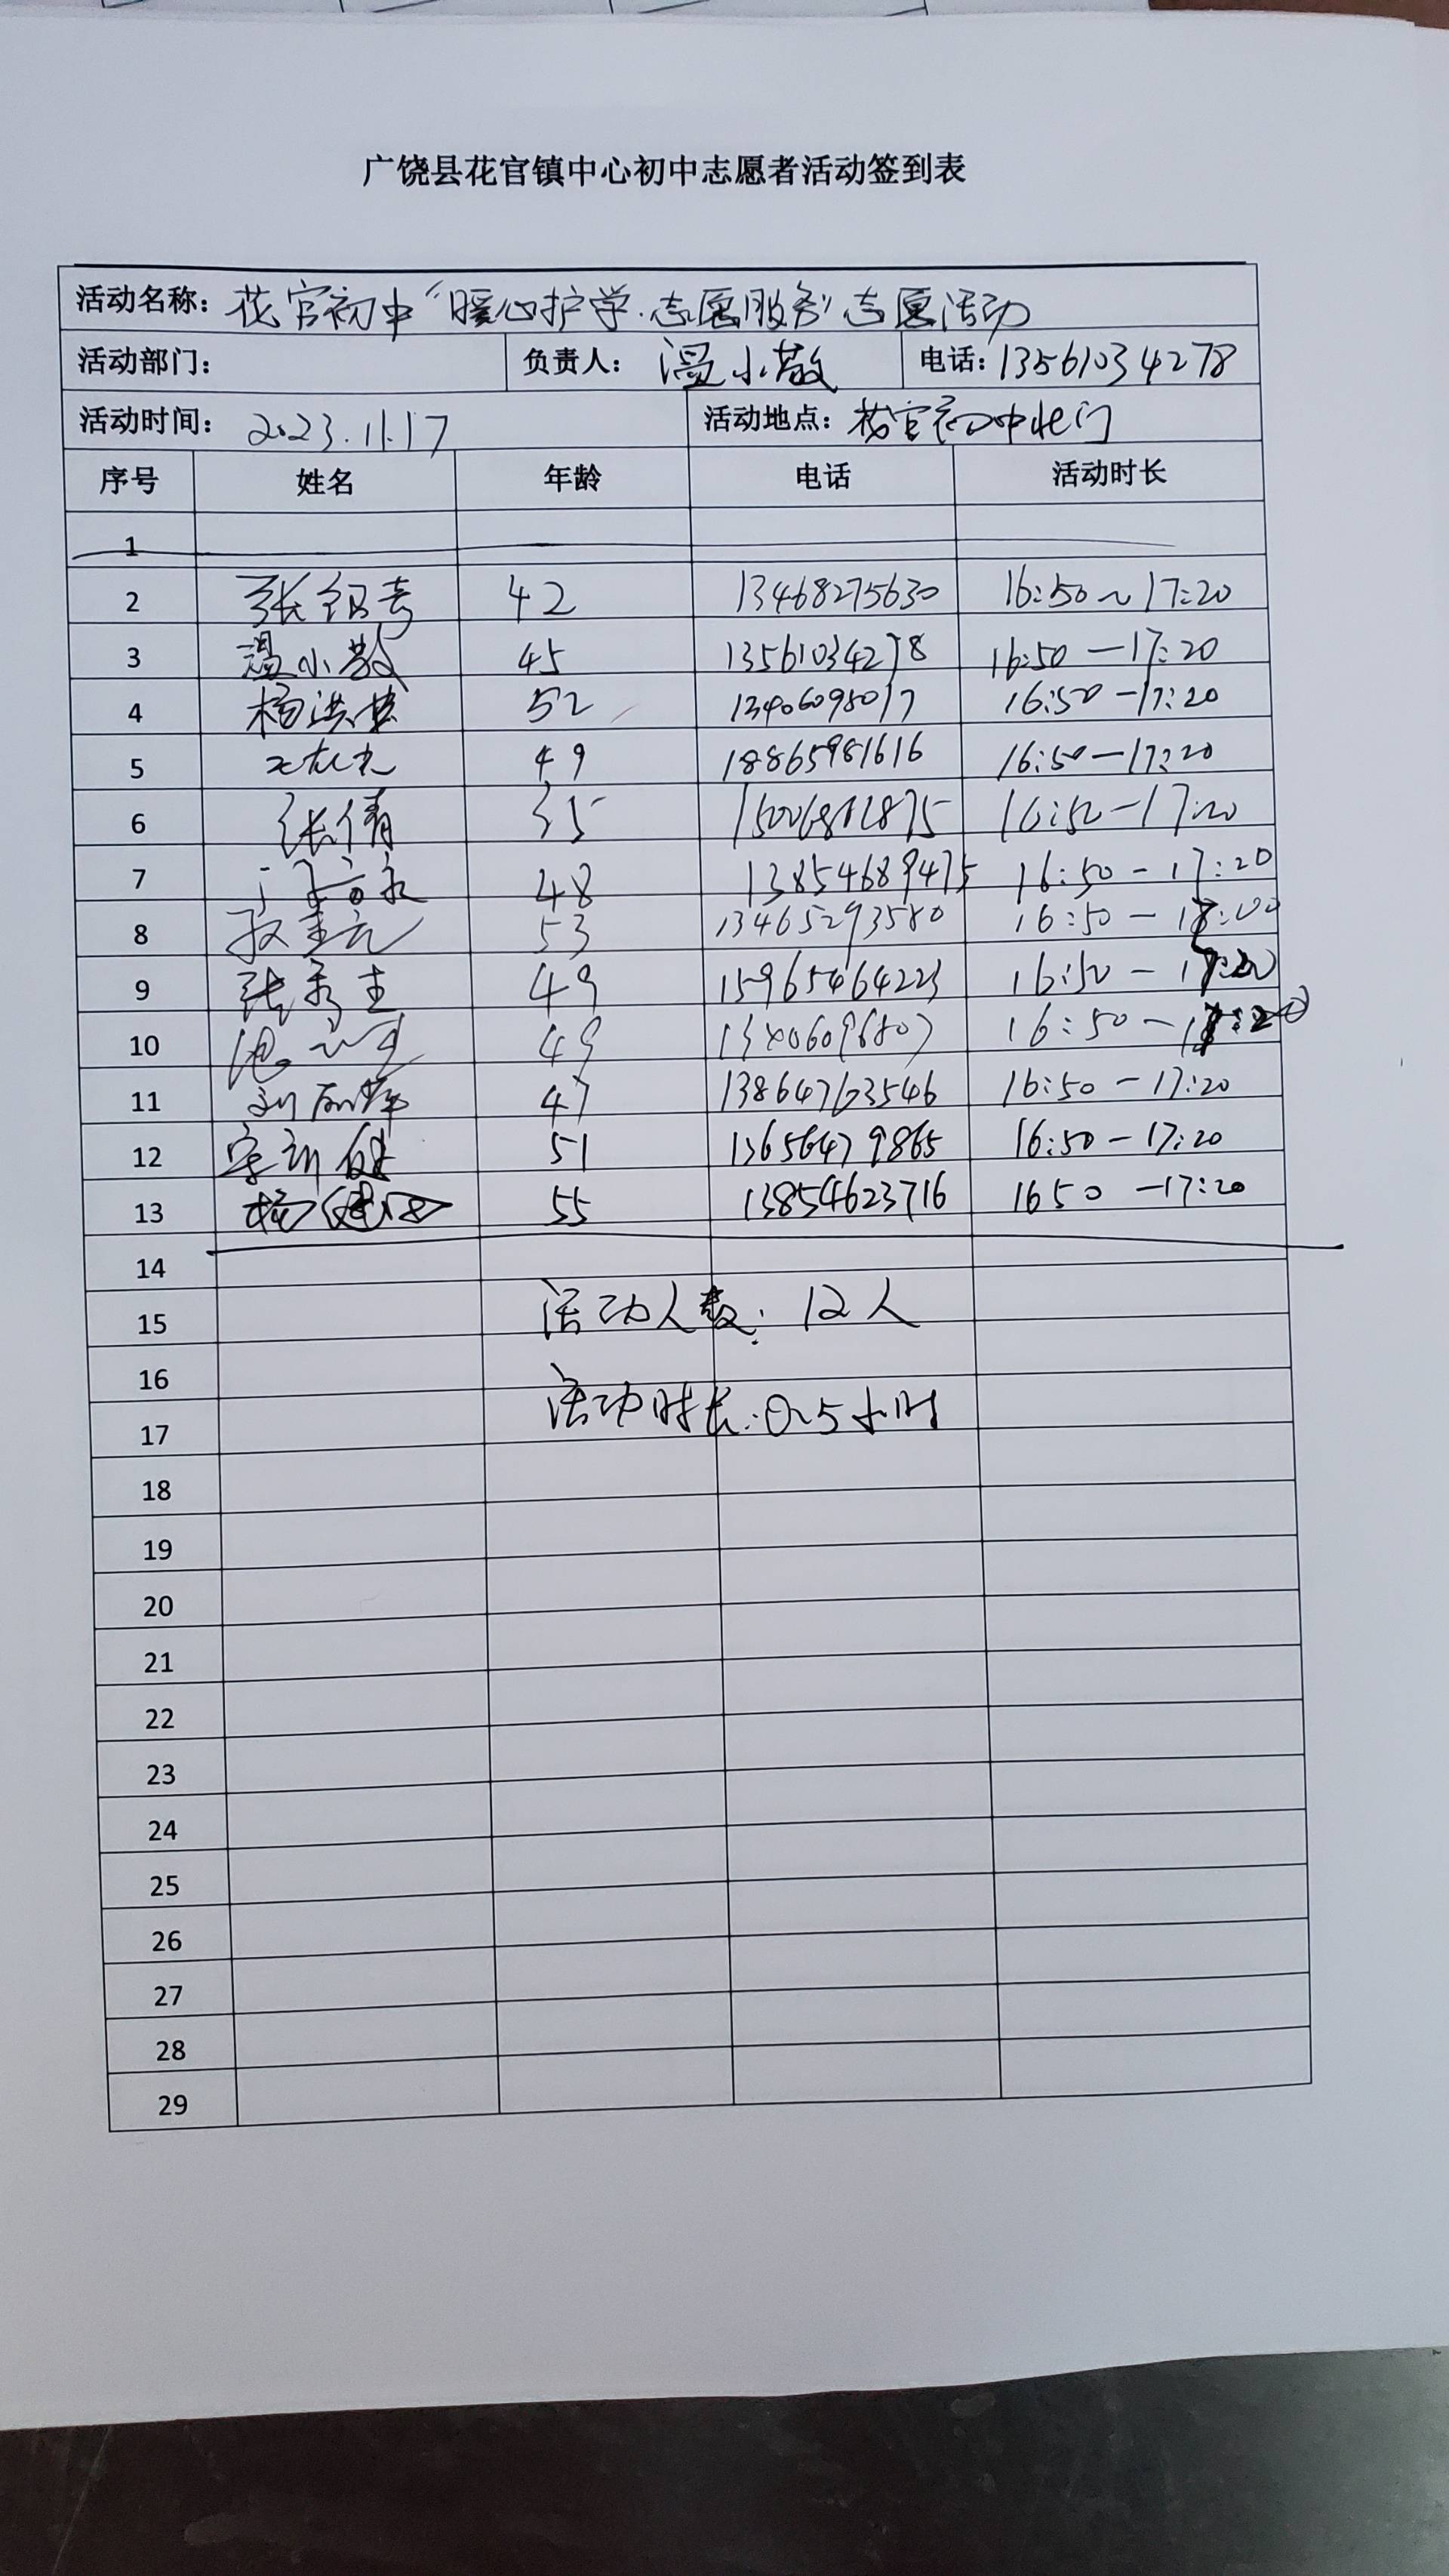 广饶县花官镇中心初中志愿者活动签到表
活动名称：花官初中“暖心护学·志愿服务”志愿活动
活动部门： 负责人：温小敬 电话：13561034278
活动时间：2023.11.17 活动地点：花官初中北门
序号 姓名 年龄 电话 活动时长
1
2 42 13468275630 16:50～17:20
3 温小敬 45 13561034278 16:50—17:20
4 52 13406098017 16:50—17:20
5 49 18865981616 16:50—17:20
6 张倩 35 16:50—17:20
7 48 13854689475 16:50—17:20
8 53 13465293580 16:50—
9 张秀圭 49 15965464223 16:50—17:20
10 49 16:50—17:20
11 47 13864763546 16:50—17:20
12 51 13656479865 16:50—17:20
13 55 13854623716 1650—17:20
14
15 活动人数：12人
16
17 活动时长：0.5小时
18
19
20
21
22
23
24
25
26
27
28
29